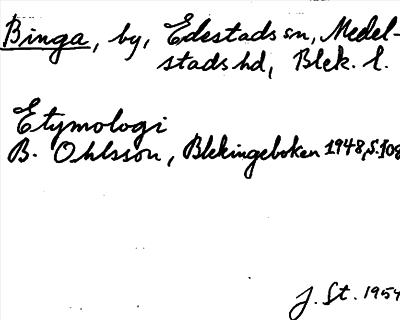 Binga, by, Edestads sn, Medel-
stads hd, Blek. l.
Etymologi
B. Ohlsson, Blekingeboken 1948, s. 108
J. St. 1954